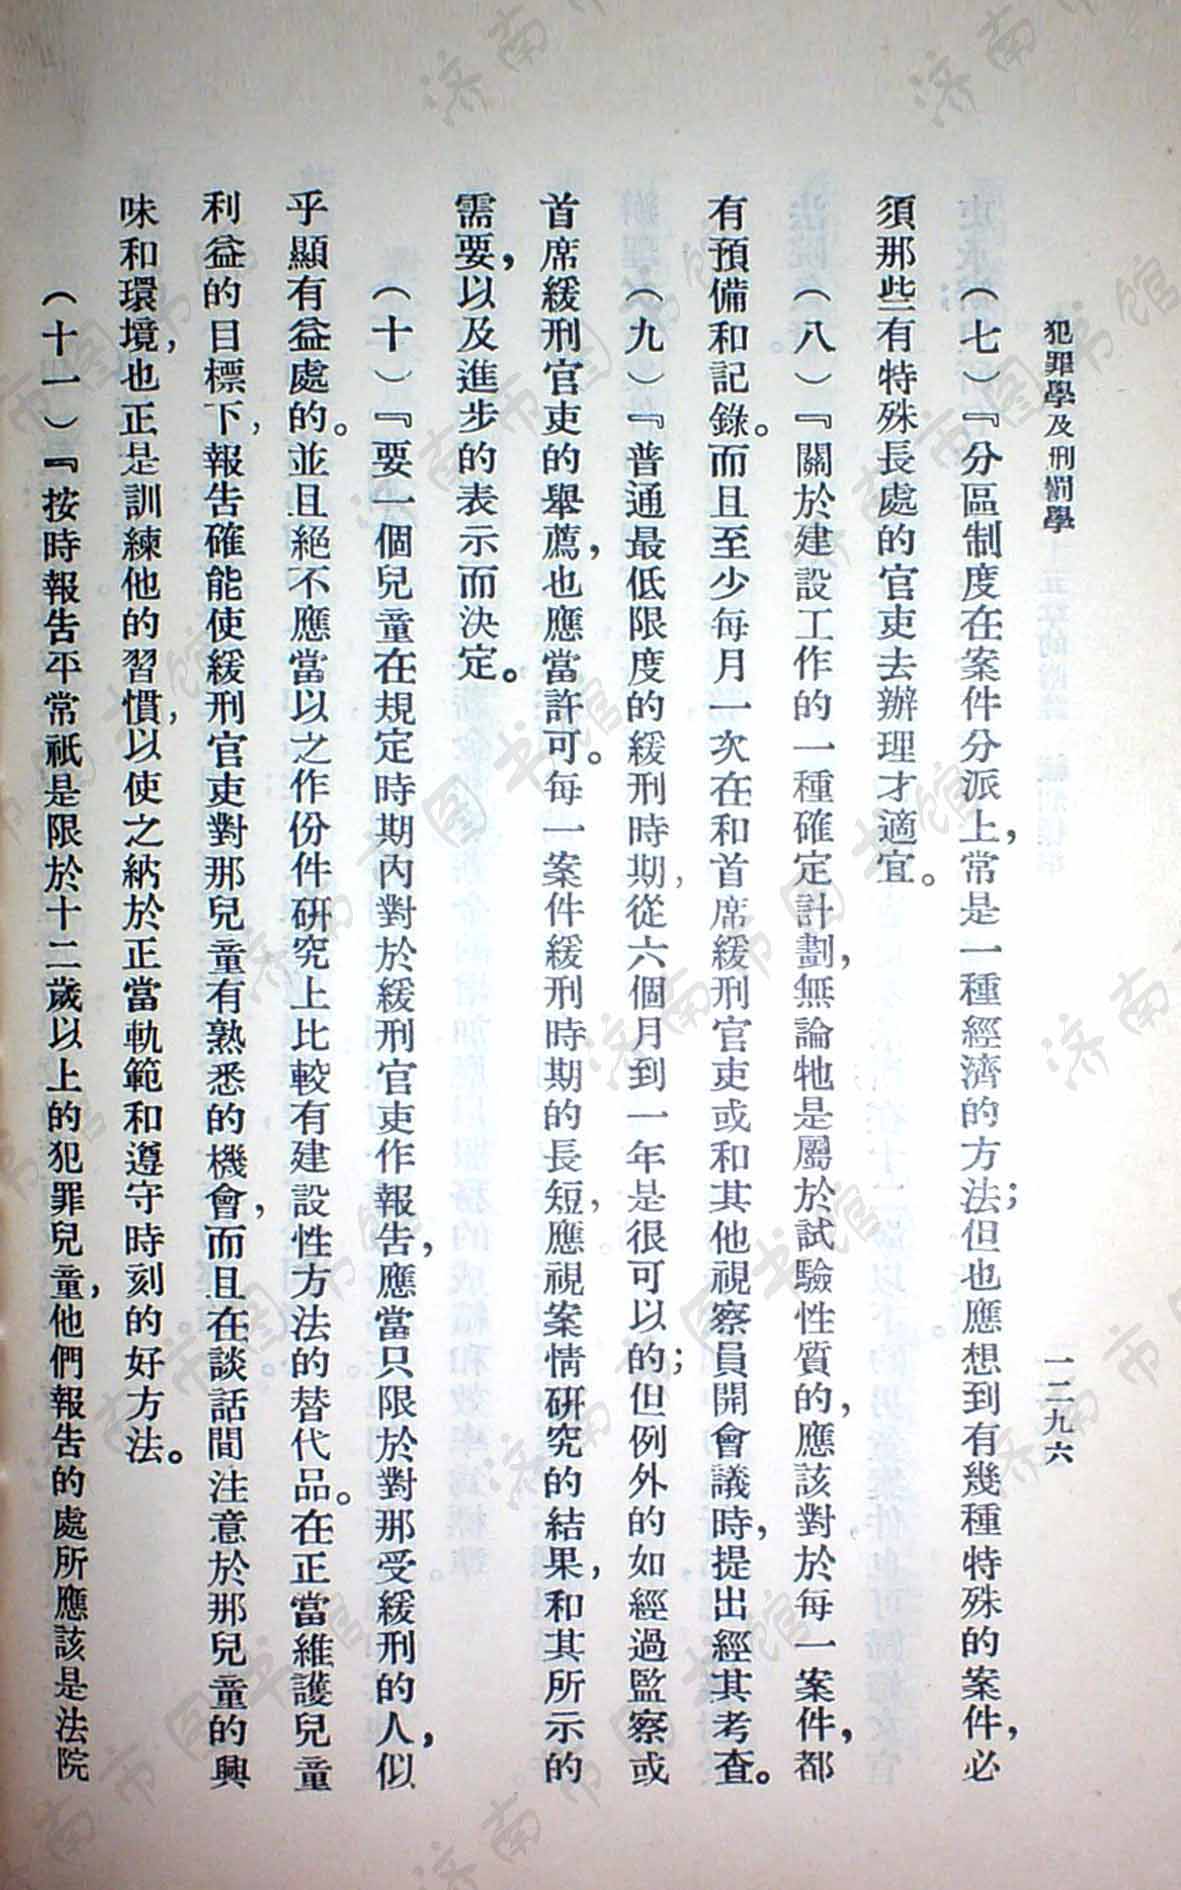 犯罪學及刑罰學　一二九六
（七）『分區制度在案件分派上，常是一種經濟的方法；但也應想到有幾種特殊的案件，必
須那些有特殊長處的官吏去辦理才適宜。
（八）『關於建設工作的一種確定計劃，無論牠是屬於試驗性質的，應該對於每一案件，都
有預備和記錄。而且至少每月一次在和首席緩刑官吏或和其他視察員開會議時，提出經其考查。
（九）『普通最低限度的緩刑時期，從六個月到一年是很可以的；但例外的如經過監察或
首席緩刑官吏的舉薦，也應當許可。每一案件緩刑時期的長短，應視案情研究的結果，和其所示的
需要，以及進步的表示而決定。
（十）『要一個兒童在規定時期內對於緩刑官吏作報告，應當只限於對那受緩刑的人，似
乎顯有益處的。並且絕不應當以之作份件研究上比較有建設性方法的替代品。在正當維護兒童
利益的目標下，報告確能使緩刑官吏對那兒童有熟悉的機會，而且在談話間注意於那兒童的興
味和環境，也正是訓練他的習慣，以使之納於正當軌範和遵守時刻的好方法。
（十一）『按時報告平常祇是限於十二歲以上的犯罪兒童，他們報告的處所應該是法院
济南市图书馆